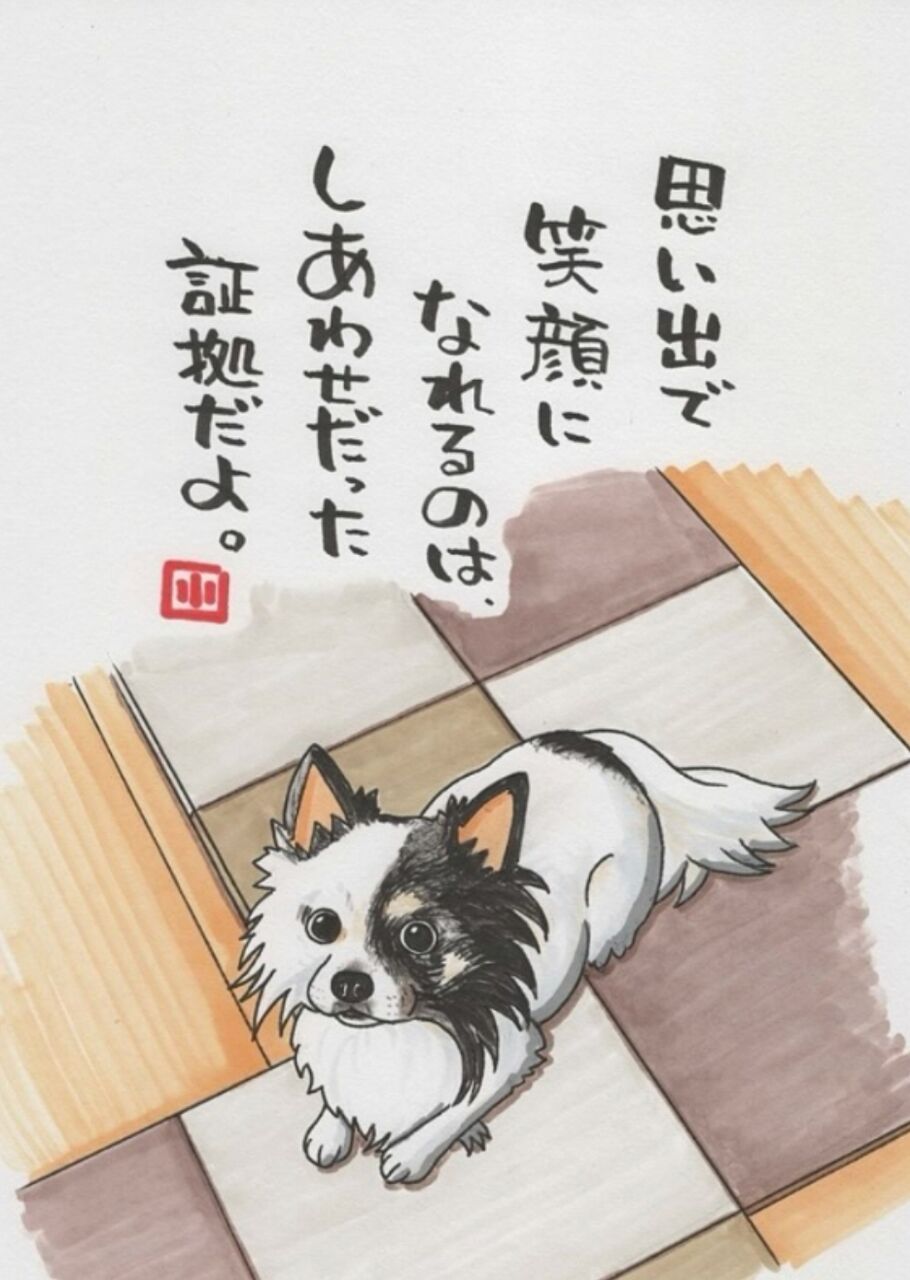 思い出で
笑顔に
なれるのは、
しあわせだった
証拠だよ。
小